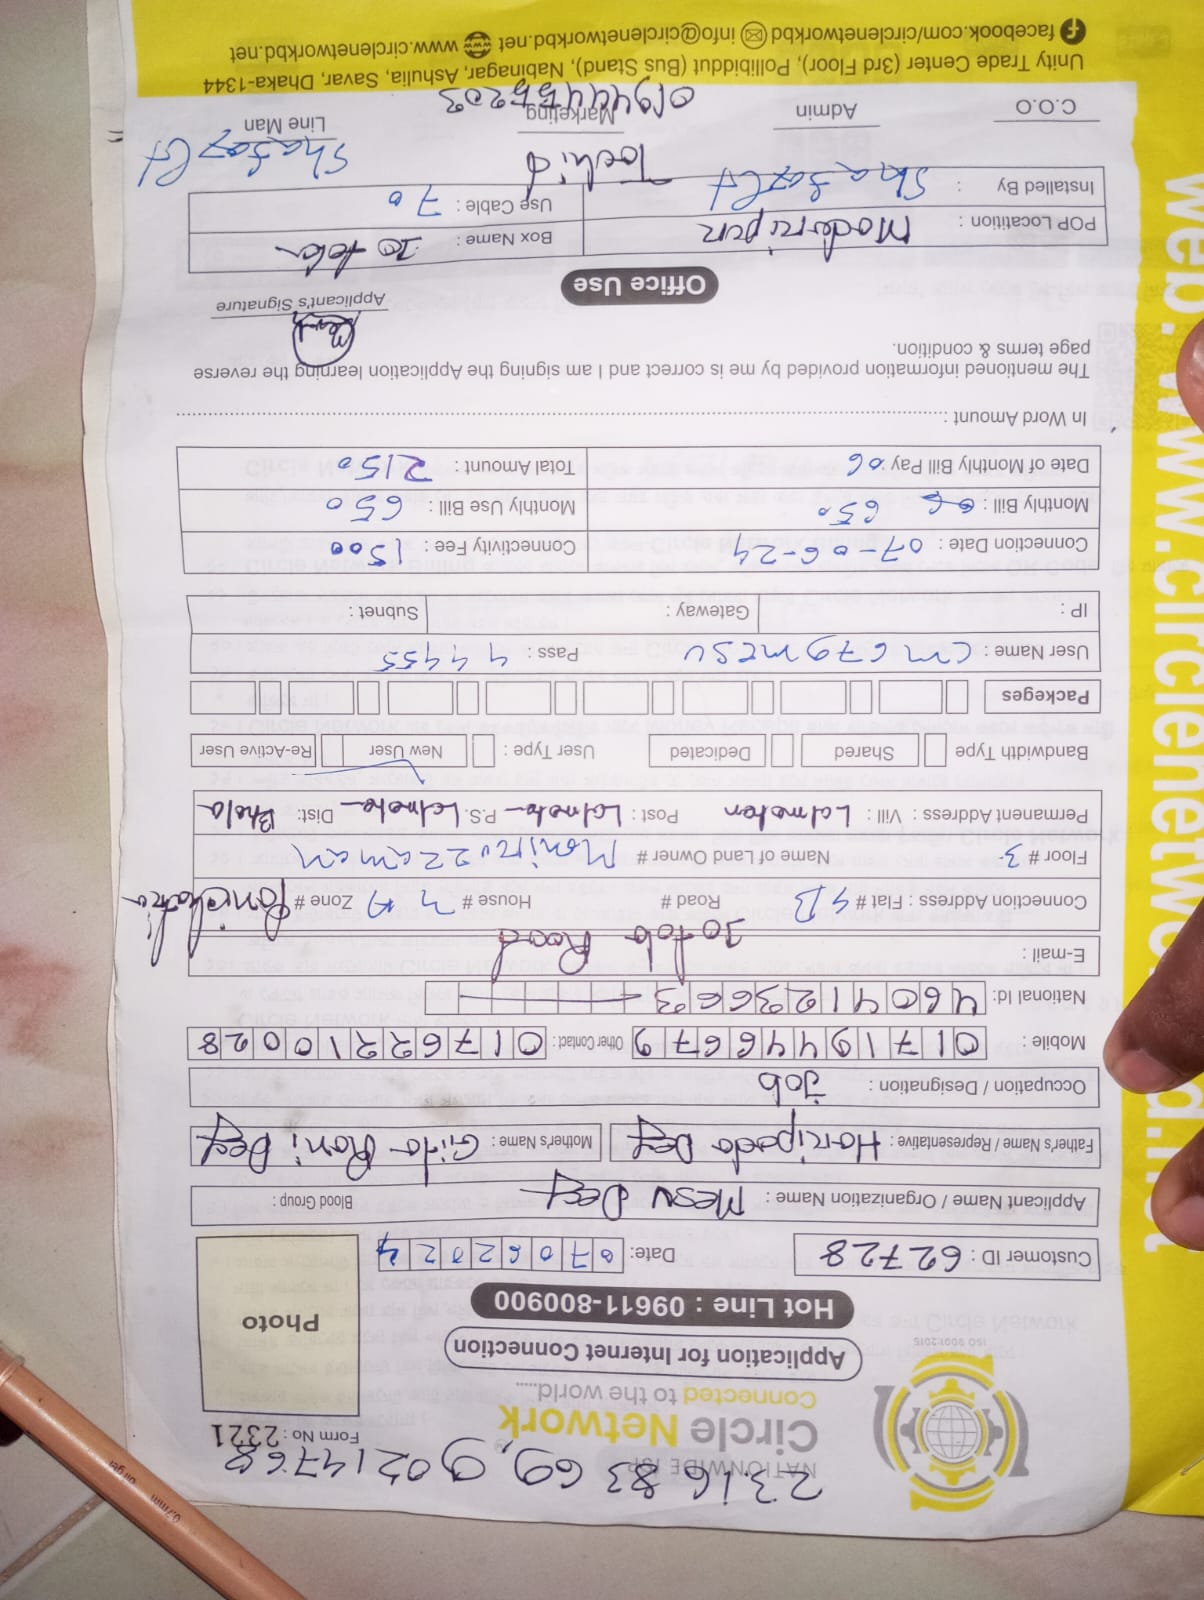 231683 69, 90214768
NATIONWIDE ISP
Form No : 2321
Circle Network
Connected to the world......
ISO 9001:2015
Application for Internet Connection
Photo
Hot Line : 09611-800900
Customer ID : 62728 Date: 07062024
Applicant Name / Organization Name : Mesu Dey Blood Group :
Father's Name / Representative : Haripada Dey Mother's Name : Gita Rani Dey
Occupation / Designation : Job
Mobile : 01719446679 Other Contact : 01762210028
National Id: 4604123663
E-mail :
10 tola Road
Connection Address : Flat # 4B Road # House # Zone #
Floor # 3 Name of Land Owner # Moniruzzaman
Permanent Address : Vill : Lalmohon Post : Lalmoho P.S. Lalmoho Dist: Bhola
Bandwidth Type Shared Dedicated User Type : New User Re-Active User
Packeges
User Name : cm679mesu Pass : 44455
IP : Gateway : Subnet :
Connection Date : 07-06-24 Connectivity Fee : 1500
Monthly Bill : 650 Monthly Use Bill : 650
Date of Monthly Bill Pay : 06 Total Amount : 2150
In Word Amount :
The mentioned information provided by me is correct and I am signing the Application learning the reverse
page terms & condition.
Applicant's Signature
Office Use
POP Locatition : Modernipur Box Name : 10 tola
Installed By : Use Cable : 70
Tochid
01944455203
C.O.O Admin Marketing Line Man
Unity Trade Center (3rd Floor), Pollibiddut (Bus Stand), Nabinagar, Ashulia, Savar, Dhaka-1344
facebook.com/circlenetworkbd info@circlenetworkbd.net www.circlenetworkbd.net
web: www.circlenetworkbd.net